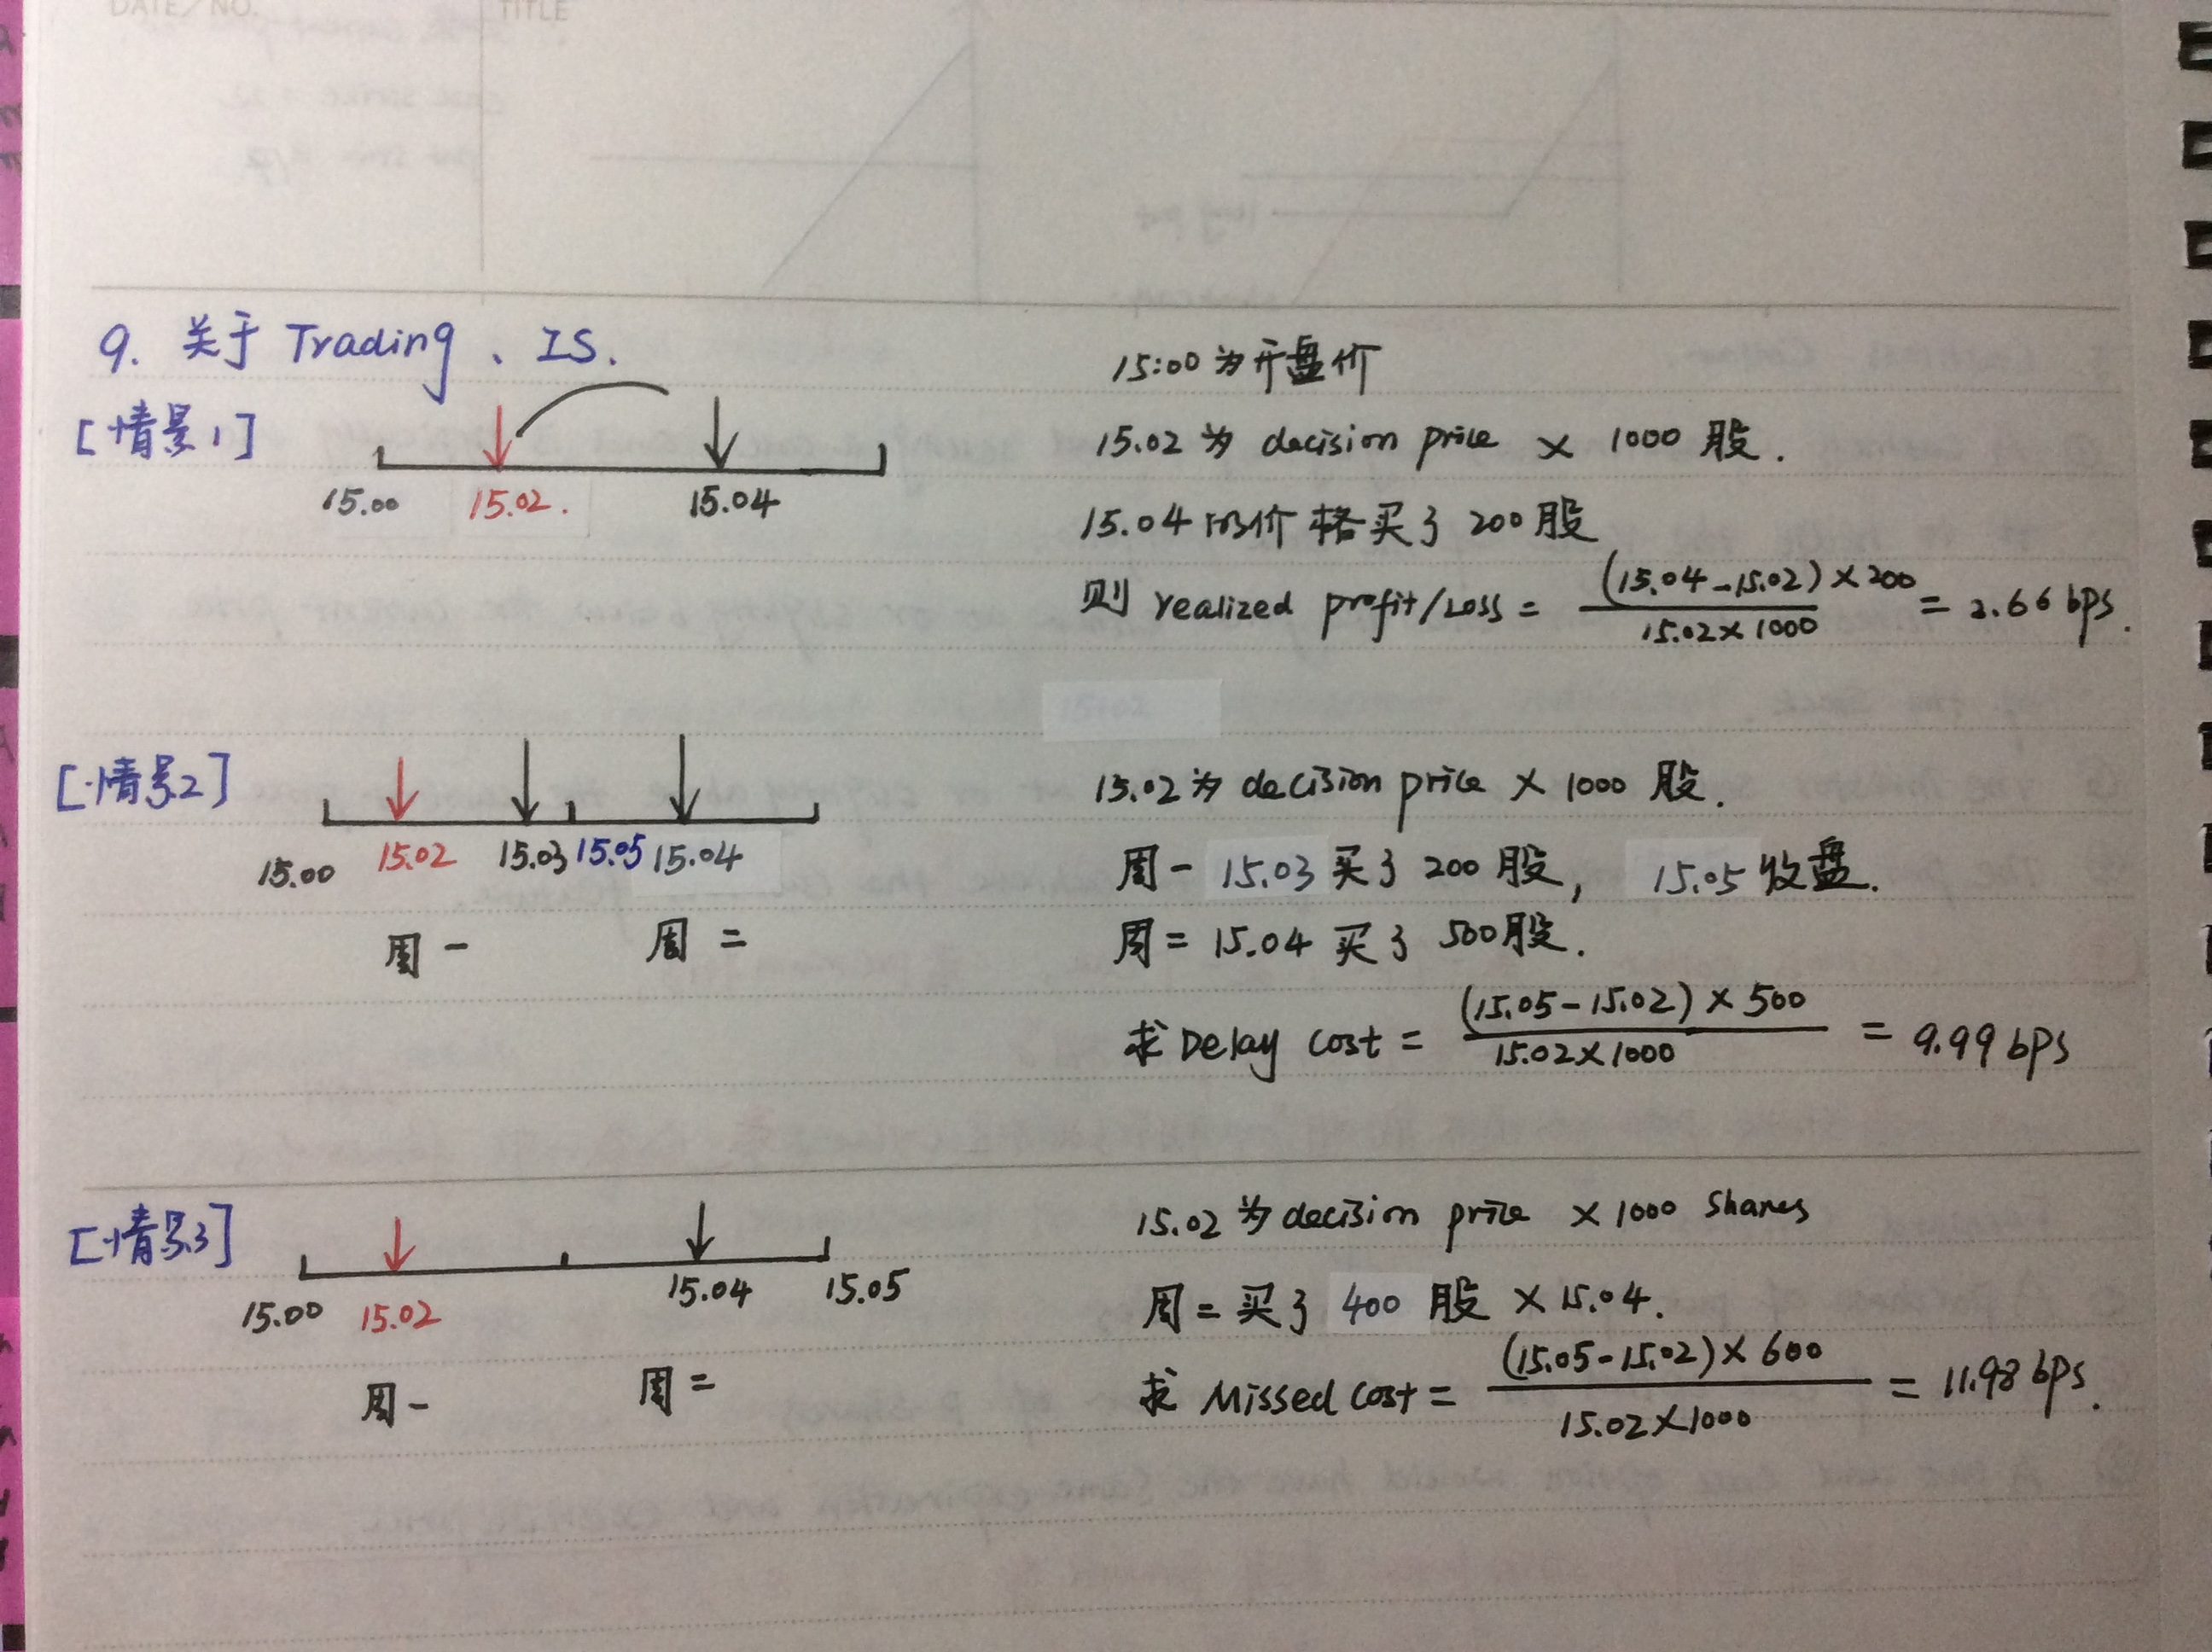 DATE/NO.
TITLE
9. 关于 Trading、IS.
[情景1]
15.00
15.02.
15.04
15:00 为开盘价
15.02 为 decision price × 1000 股.
15.04 的价格买了 200 股
则 realized profit/Loss = (15.04-15.02)×200 / 15.02×1000 = 2.66 bps.
[情景2]
15.00
15.02
15.03
15.05
15.04
周一
周二
15.02 为 decision price × 1000 股.
周一 15.03 买了 200 股, 15.05 收盘.
周二 15.04 买了 500股.
求 Delay cost = (15.05-15.02)×500 / 15.02×1000 = 9.99 bps
[情景3]
15.00
15.02
15.04
15.05
周一
周二
15.02 为 decision price × 1000 shares
周二买了 400 股 × 15.04.
求 Missed cost = (15.05-15.02)×600 / 15.02×1000 = 11.98 bps.